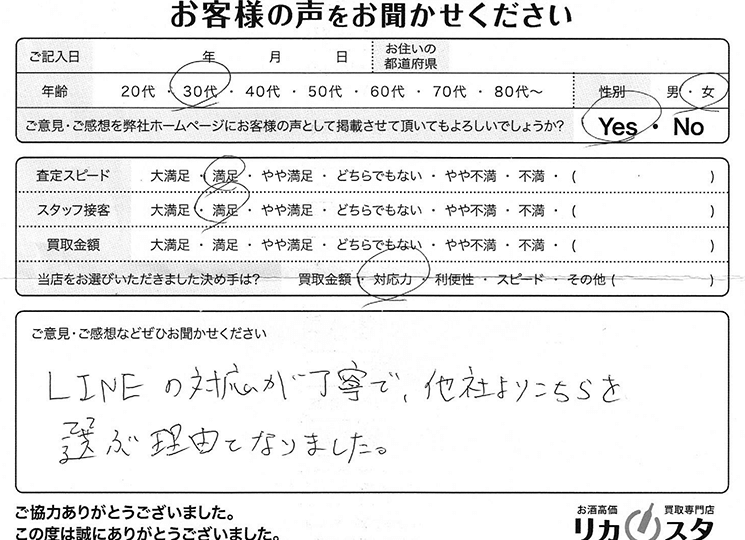 お客様の声をお聞かせください
ご記入日 年 月 日 お住いの都道府県
年齢 20代 ・ 30代 ・ 40代 ・ 50代 ・ 60代 ・ 70代 ・ 80代〜 性別 男 ・ 女
ご意見・ご感想を弊社ホームページにお客様の声として掲載させて頂いてもよろしいでしょうか? Yes ・ No
査定スピード 大満足 ・ 満足 ・ やや満足 ・ どちらでもない ・ やや不満 ・ 不満 ・ ( )
スタッフ接客 大満足 ・ 満足 ・ やや満足 ・ どちらでもない ・ やや不満 ・ 不満 ・ ( )
買取金額 大満足 ・ 満足 ・ やや満足 ・ どちらでもない ・ やや不満 ・ 不満 ・ ( )
当店をお選びいただきました決め手は? 買取金額 ・ 対応力 ・ 利便性 ・ スピード ・ その他 ( )
ご意見・ご感想などぜひお聞かせください
LINEの対応が丁寧で、他社よりこちらを
選ぶ理由となりました。
ご協力ありがとうございました。
この度は誠にありがとうございました。
お酒高価 買取専門店
リカスタ